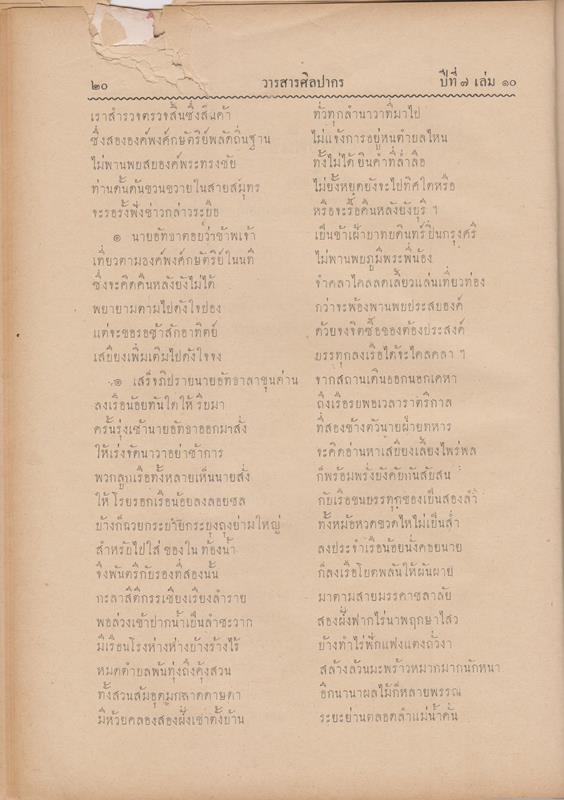 ๒๐ วารสารศิลปากร ปีที่ ๗ เล่ม ๑๐
เราสำรวจตรวจสิ้นซึ่งสินค้า ทั่วทุกลำนาวาที่มาไป
ซึ่งสององค์พงศ์กษัตริย์พลัดถิ่นฐาน ไม่แจ้งการอยู่หนตำบลไหน
ไม่พานพบสององค์พระทรงชัย ทั้งไม่ได้ยินคำที่ร่ำลือ
ท่านดั้นด้นชวนขวายในสายสมุทร ไม่ยั้งหยุดยังจะไปทิศใดหรือ
จะรอรั้งฟังข่าวกล่าวระบือ หรือจะรื้อคืนหลังยังบุรี ฯ
๏ นายอัทธาตอบว่าข้าพเจ้า เป็นข้าเฝ้าบาทบดินทร์ปิ่นกรุงศรี
เที่ยวตามองค์พงศ์กษัตริย์ในนที ไม่พานพบภูมิพระพี่น้อง
ซึ่งจะคิดคืนหลังยังไม่ได้ จำคลาไคลลดเลี้ยวแล่นเที่ยวท่อง
พยายามตามไปดังใจปอง กว่าจะพ้องพานพบประสบองค์
แต่จะขอรอช้าสักอาทิตย์ ด้วยจงจิตซื้อของต้องประสงค์
เสบียงเพิ่มเติมไปดังใจจง บรรทุกลงเรือได้จะไคลคลา ฯ
๏ เสร็จภิปรายนายอัทธาลาขุนด่าน จากสถานเดินออกนอกเคหา
ลงเรือน้อยทันใดให้รีบมา ถึงเรือรบพอเวลาราตรีกาล
ครั้นรุ่งเช้านายอัทธาออกมาสั่ง ที่สองข้างตัวนายฝ่ายทหาร
ให้เร่งจัดนาวาอย่าช้าการ จะคิดอ่านหาเสบียงเลี้ยงไพร่พล
พวกลูกเรือทั้งหลายเห็นนายสั่ง ก็พร้อมพรั่งยังคัยกันสับสน
ให้โรยรอกเรือน้อยลงลอยชล กับเรือขนบรรทุกของเป็นสองลำ
บ้างก็ฉวยกระบายกระบุงถุงย่ามใหญ่ ทั้งหม้อหวดขวดไหไม่เป็นส่ำ
สำหรับไปใส่ของในท้องน้ำ ลงประจำเรือน้อยนั่งคอยนาย
จึงพันตรีกับรองที่สองนั้น ก็ลงเรือโบตพลันให้ผันผาย
กะลาสีตีกรรเชียงเรียงลำราย มาตามสายมรรคาชลาลัย
พอล่วงเข้าปากน้ำเป็นลำชะวาก สองฝั่งฟากไร่นาพฤกษาไสว
มีเรือนโรงห่างห่างบ้างร้างไร้ บ้างทำไร่ฟักแฟงแตงถั่วงา
หมดตำบลพ้นทุ่งถึงคุ้งสวน สล้างล้วนมะพร้าวหมากมากนักหนา
ทั้งสวนส้มอุดมกลาดดาษดา อีกนานาผลไม้ก็หลายพรรณ
มีห้วยคลองสองฝั่งเข่าตั้งบ้าน ระยะย่านตลอดลำแม่น้ำคั่น